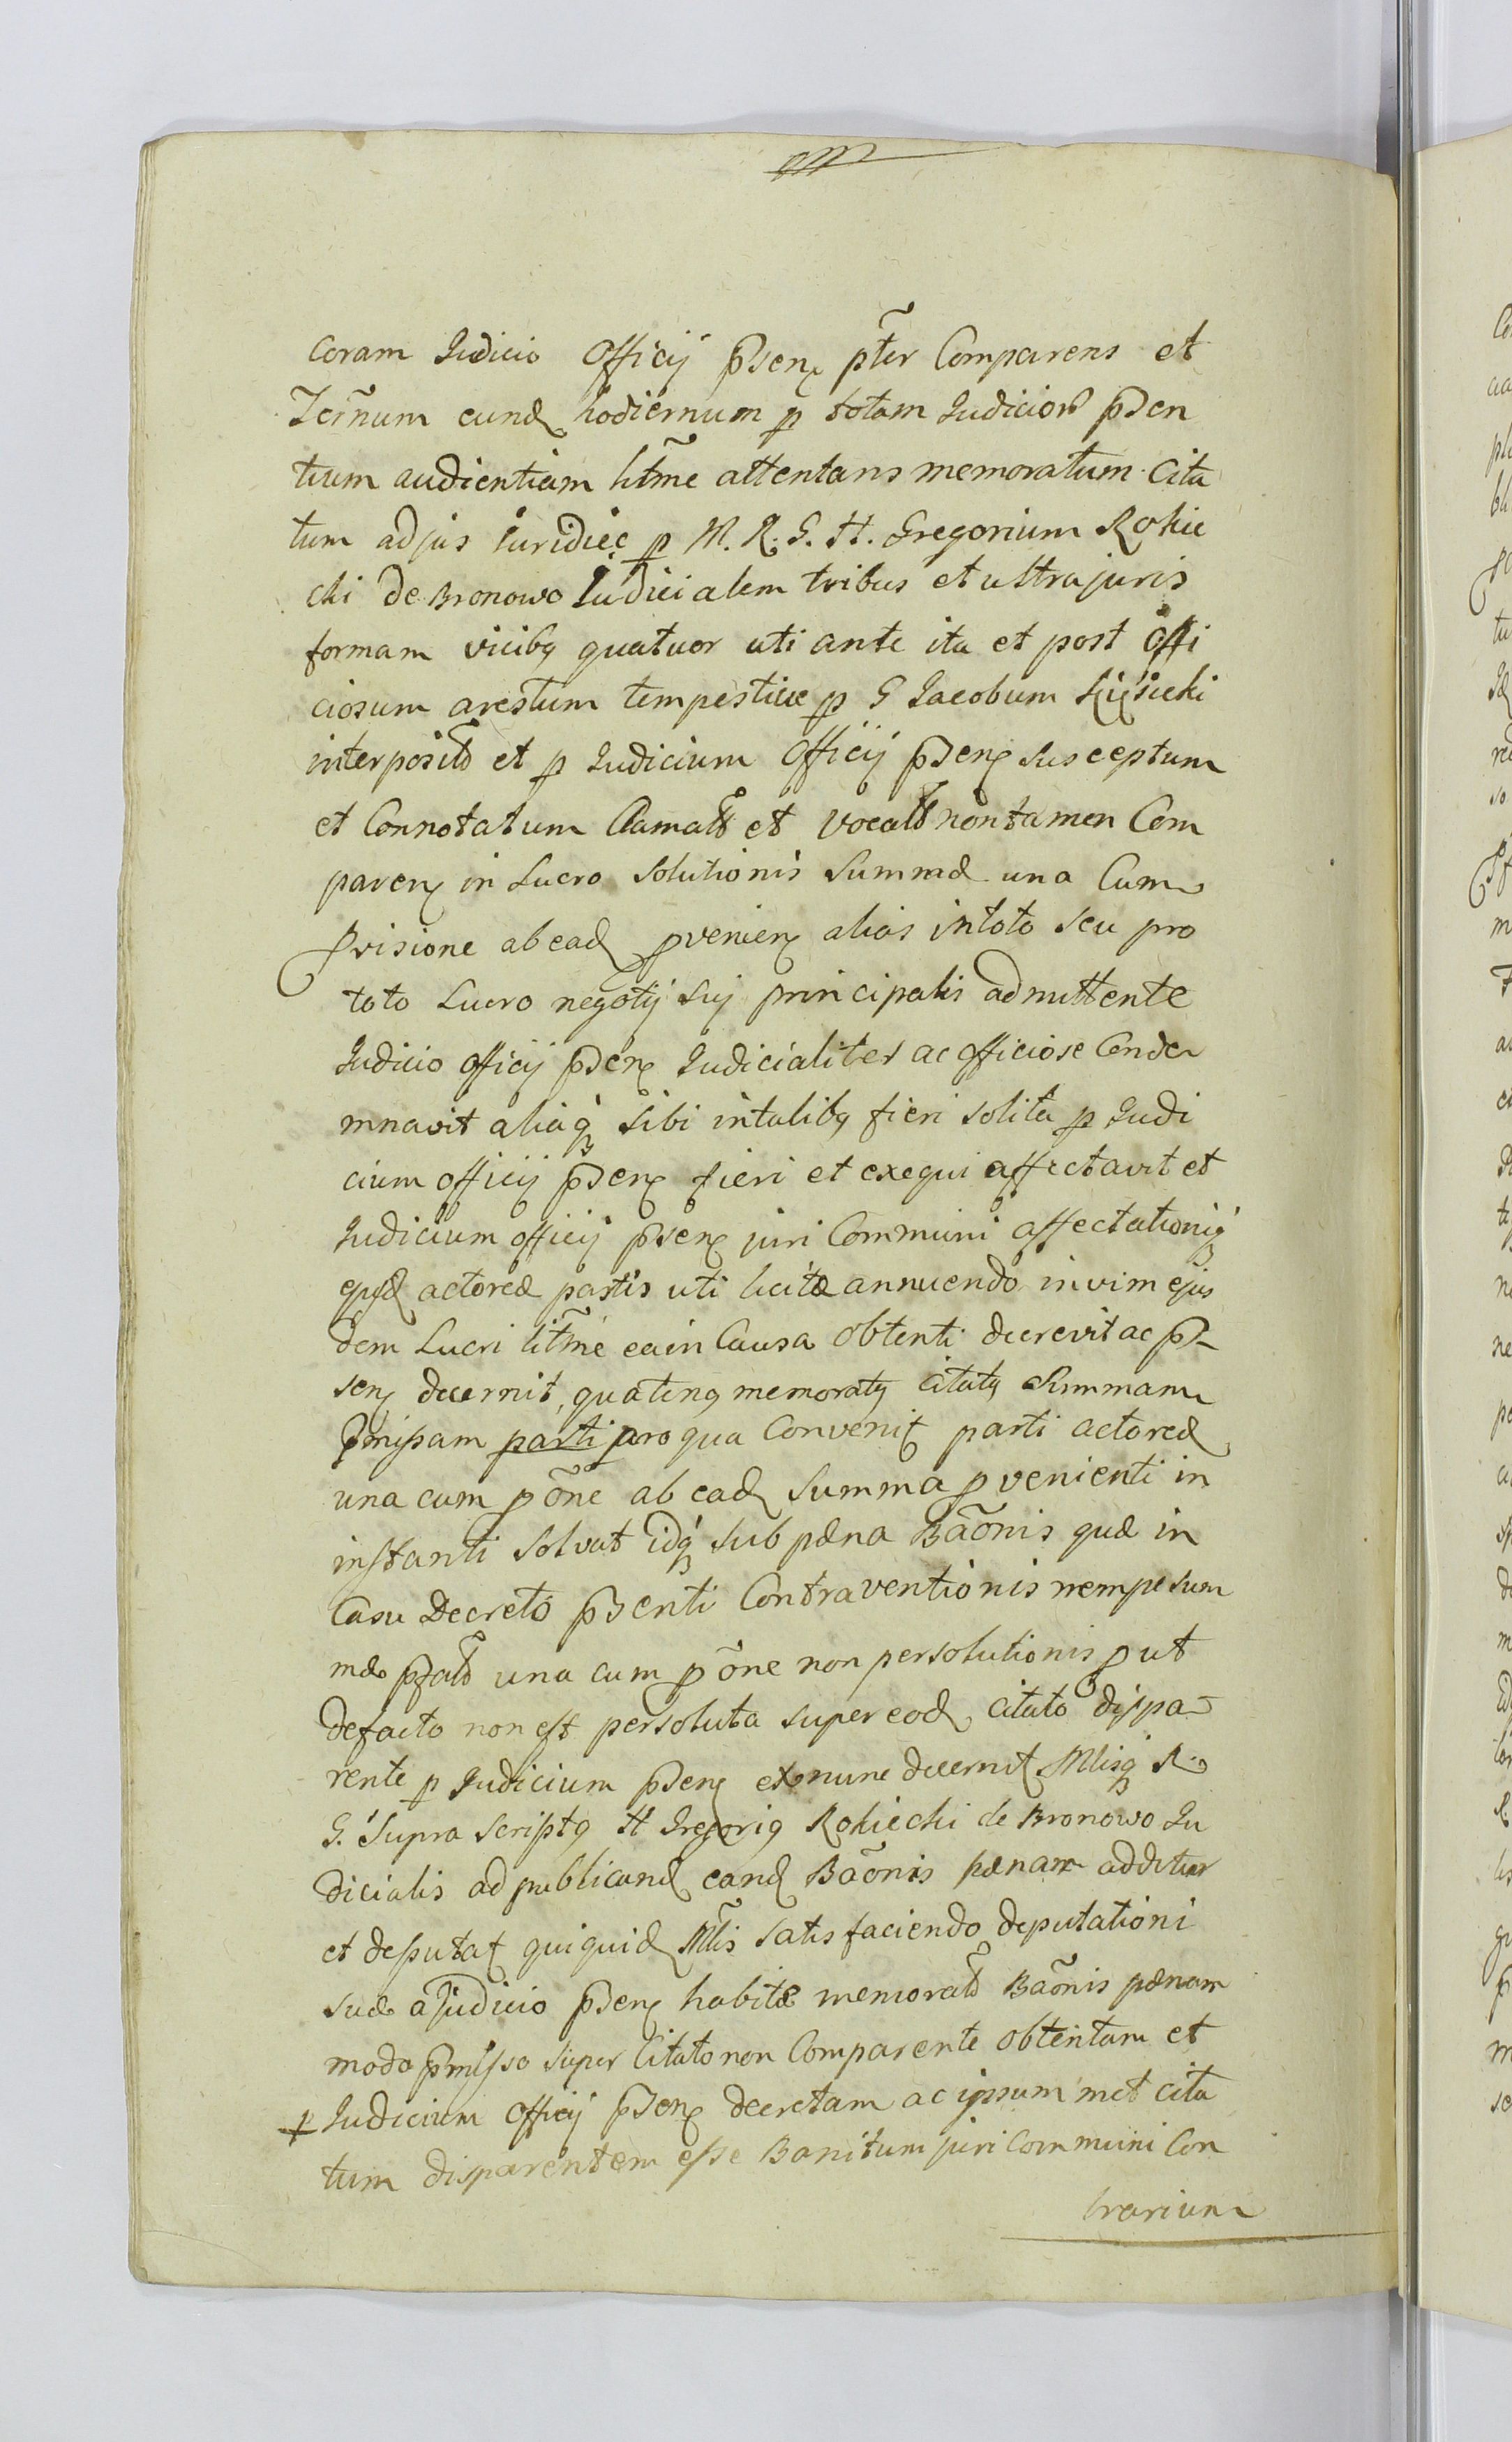 coram Judicio Officij p̄sen ꝑter Comparens et
Ter̃num eund hodiernum ꝑ totam Judicior p̄sen
tium audientiam ltm̃e attentans memoratum Cita
tum ad jus Juridice ꝑ M. R. G. H. Gregorium Rokic
cki de Bronowo Judicialem tribus et ultra juris
formam vicibꝗ quatuor uti ante ita et post Offi
ciosum arestum tempestive ꝑ G Jacobum
interposit et ꝑ Judicium Officij p̄sen susceptum
et Connotatum Clamat et vocat non tamen Com
paren in Lucro Solutionis Summæ una Cum
ꝓvisione ab ead ꝓvenien alias in toto seu pro
toto Lucro negotij Sui principalis admittente
Judicio officij p̄sen Judicialiter ac officiose Conde
mnavit aliaqꝫ sibi in talibꝗ fieri solita ꝑ Judi
cium officij p̄sen fieri et exequi affectavit et
Judicium officij p̄sen juri Communi affectationiqꝫ
ejusd actoreæ partis uti licitæ annuendo in vim ejus
dem Lucri ltm̃e ea in Causa obtenti decrevit ac p̄
sen decernit, quatenꝗ memoratꝗ citatꝗ Summam
p̄missam parti pro qua Convenit parti actoreæ
una cum ꝓõne ab ead Summa ꝓvenienti in
instanti solvat idqꝫ sub pæna Bãonis quæ in
Casu Decreto p̄senti Contraventionis nempe sum
mæ p̄fat una cum ꝓõne non persolutionis ꝓut
defacto non est persoluta super eod citato dispa-
rente ꝑ Judicium p̄sen ex nunc decernit Mlisqꝫ R.
G. Supra scriptꝗ H Gregoriꝗ Rokicki de Bronowo Ju
dicialis ad publicand eand Bãonis pænam additur
et deputat quiquid Mlis satisfaciendo deputationi
suæ a Judicio p̄sen habitæ memorat Bãonis pænam
modo p̄misso super Citato non Comparente obtentam et
ꝑ Judicium Officij p̄sen decretam ac ipsummet cita
tum disparentem esse Banitum juri Communi Con
trarium